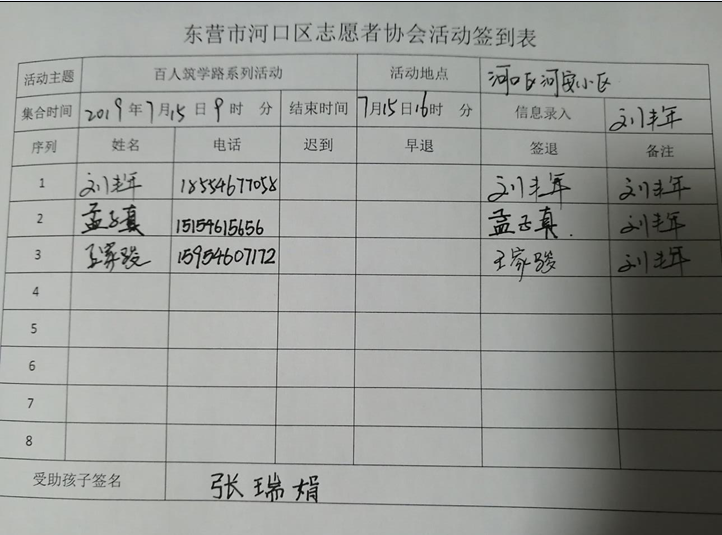 东营市河口区志愿者协会活动签到表
活动主题 百人筑学路系列活动 活动地点 河口区河安小区
集合时间 2019年7月15日9时 分 结束时间 7月15日16时 分 信息录入 刘丰年
序列 姓名 电话 迟到 早退 签退 备注
1 刘丰年 18554677058 刘丰年 刘丰年
2 孟子真 15154615656 孟子真. 刘丰年
3 王家骏 15954607172 王家骏 刘丰年
4
5
6
7
8
受助孩子签名 张瑞娟